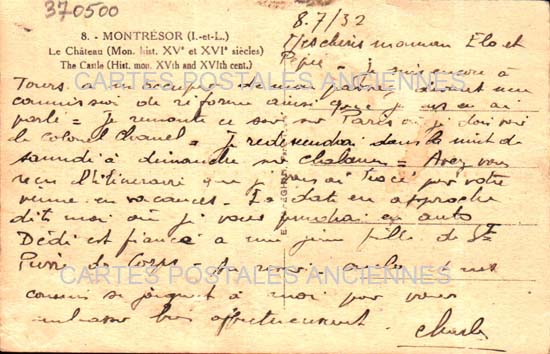 370500
8. - MONTRÉSOR (I.-et-L.)
Le Château (Mon. hist. XVe et XVIe siècles)
The Castle (Hist. mon. XVth and XVIth cent.)
CARTES POSTALES ANCIENNES
8.7/32
Mes cheris maman Elo et
Pépé = Je suis encore à
Tours à m'occuper de mon devant une
commission de réforme ainsi que je vous en ai
parlé = Je remonte ce soir sur Paris où je dois voir
le colonel = Je redescendrai dans la nuit de
samedi à dimanche sur = Avez vous
reçu l'itinéraire que je vous ai tracé pour votre
venue en vacances - La date en approche
dites moi où je vous prendrai en auto
Dédé est fiancé à une jeune fille de St
Pierre de Corps -
CARTES POSTALES ANCIENNES
cousins se joignent à moi pour vous
embrasser bien affectueusement. Charles